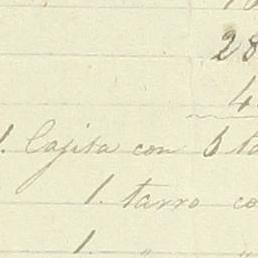 28
4
1. Cajita con 3 ta
1. tarro co
1. " "